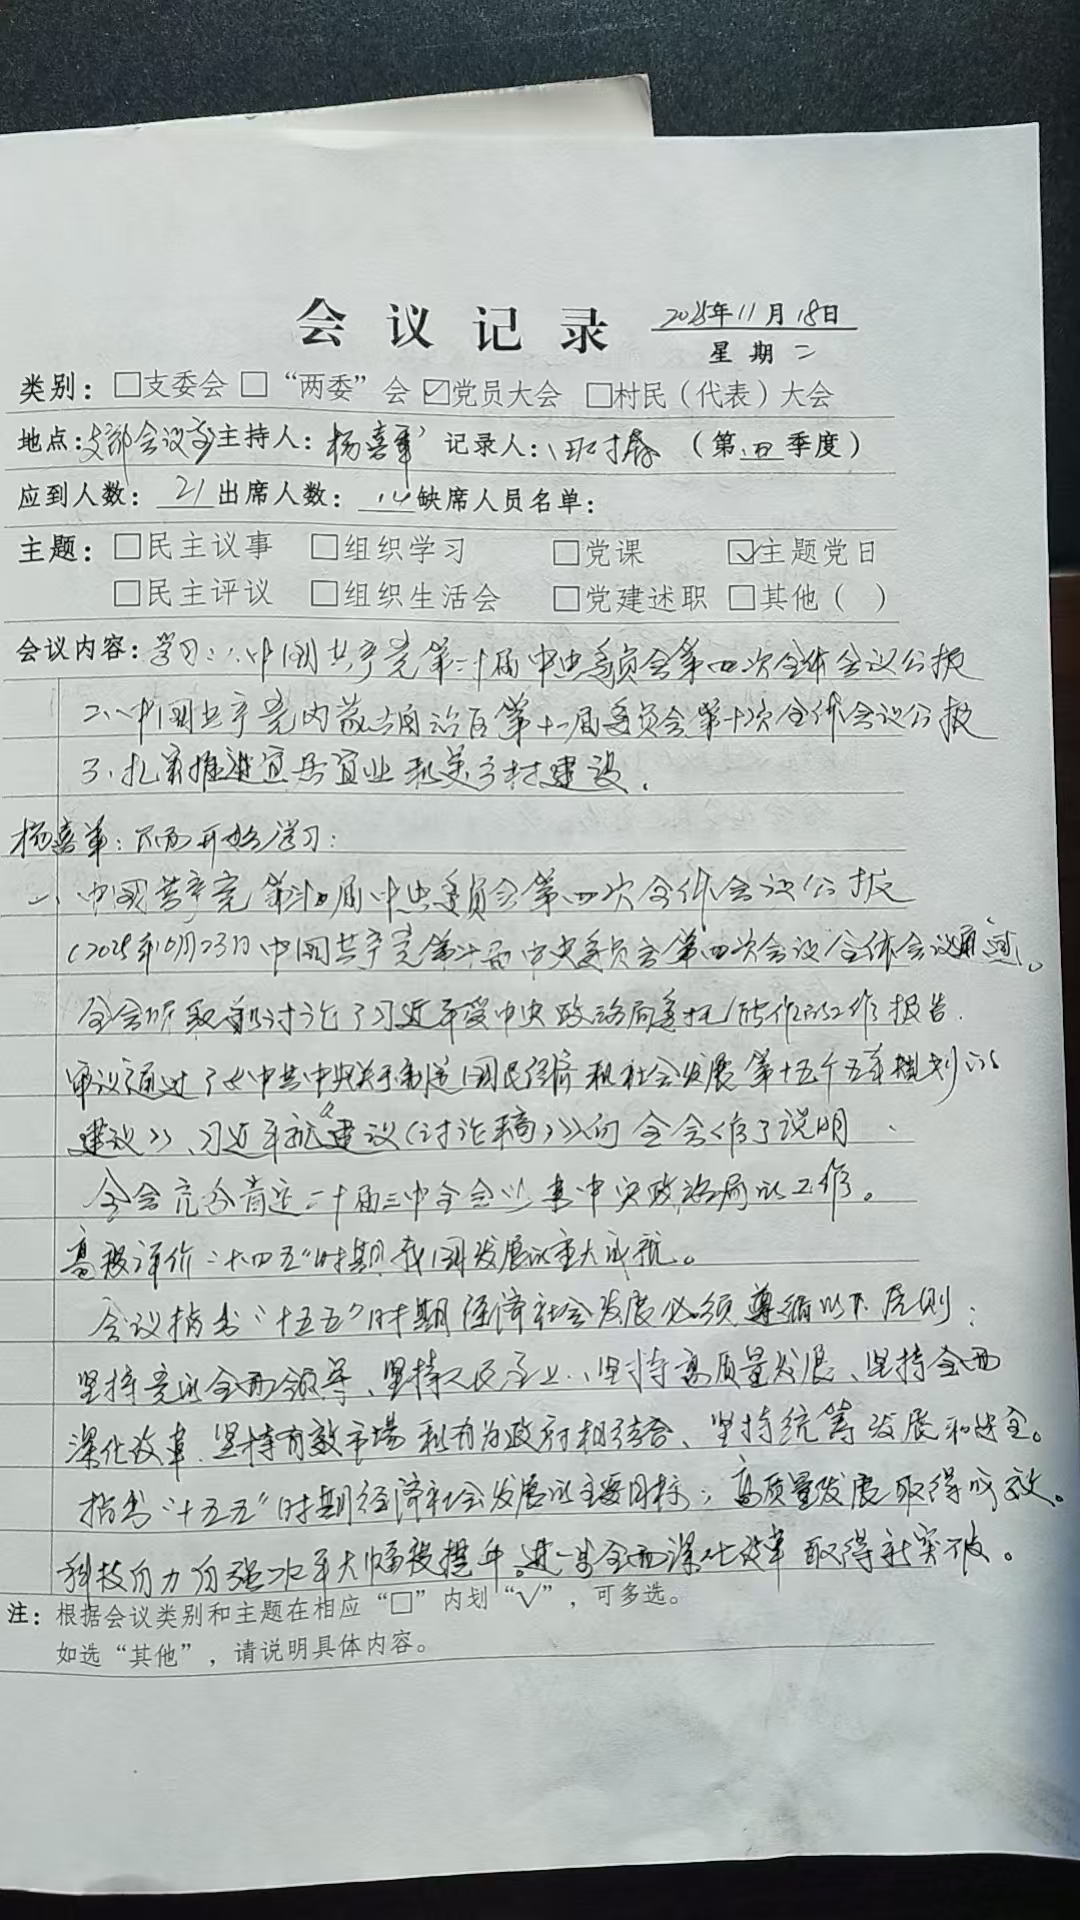 会议记录 2025年11月18日
星期二
类别：□支委会 □“两委”会 ☑党员大会 □村民（代表）大会
地点：支部会议室 主持人：杨喜军 记录人： （第四季度）
应到人数：21 出席人数： 缺席人员名单：
主题：□民主议事 □组织学习 □党课 ☑主题党日
□民主评议 □组织生活会 □党建述职 □其他（ ）
会议内容：学习：1、中国共产党第二十届中央委员会第四次全体会议公报
2、中国共产党内蒙古自治区第十一届委员会第十次全体会议公报
3、扎实推进宜居宜业和美乡村建设.
杨喜军：下面开始学习：
一、中国共产党第二十届中央委员会第四次全体会议公报
（2025年10月23日中国共产党第二十届中央委员会第四次会议全体会议通过。
全会听取和讨论了习近平受中央政治局委托所作的工作报告.
审议通过了《中共中央关于制定国民经济和社会发展第十五个五年规划的
建议》、习近平就建议（讨论稿）》向全会作了说明
全会充分肯定二十届三中全会以来中央政治局的工作。
高度评价“十四五”时期我国发展的重大成就。
会议指出“十五五”时期经济社会发展必须遵循以下原则：
坚持党的全面领导、坚持人民至上、坚持高质量发展、坚持全面
深化改革、坚持有效市场和有为政府相结合、坚持统筹发展和安全。
指出“十五五”时期经济社会发展的主要目标：高质量发展取得成效。
科技自力自强水平大幅度提升。进一步全面深化改革取得新突破。
注：根据会议类别和主题在相应“□”内划“√”，可多选。
如选“其他”，请说明具体内容。